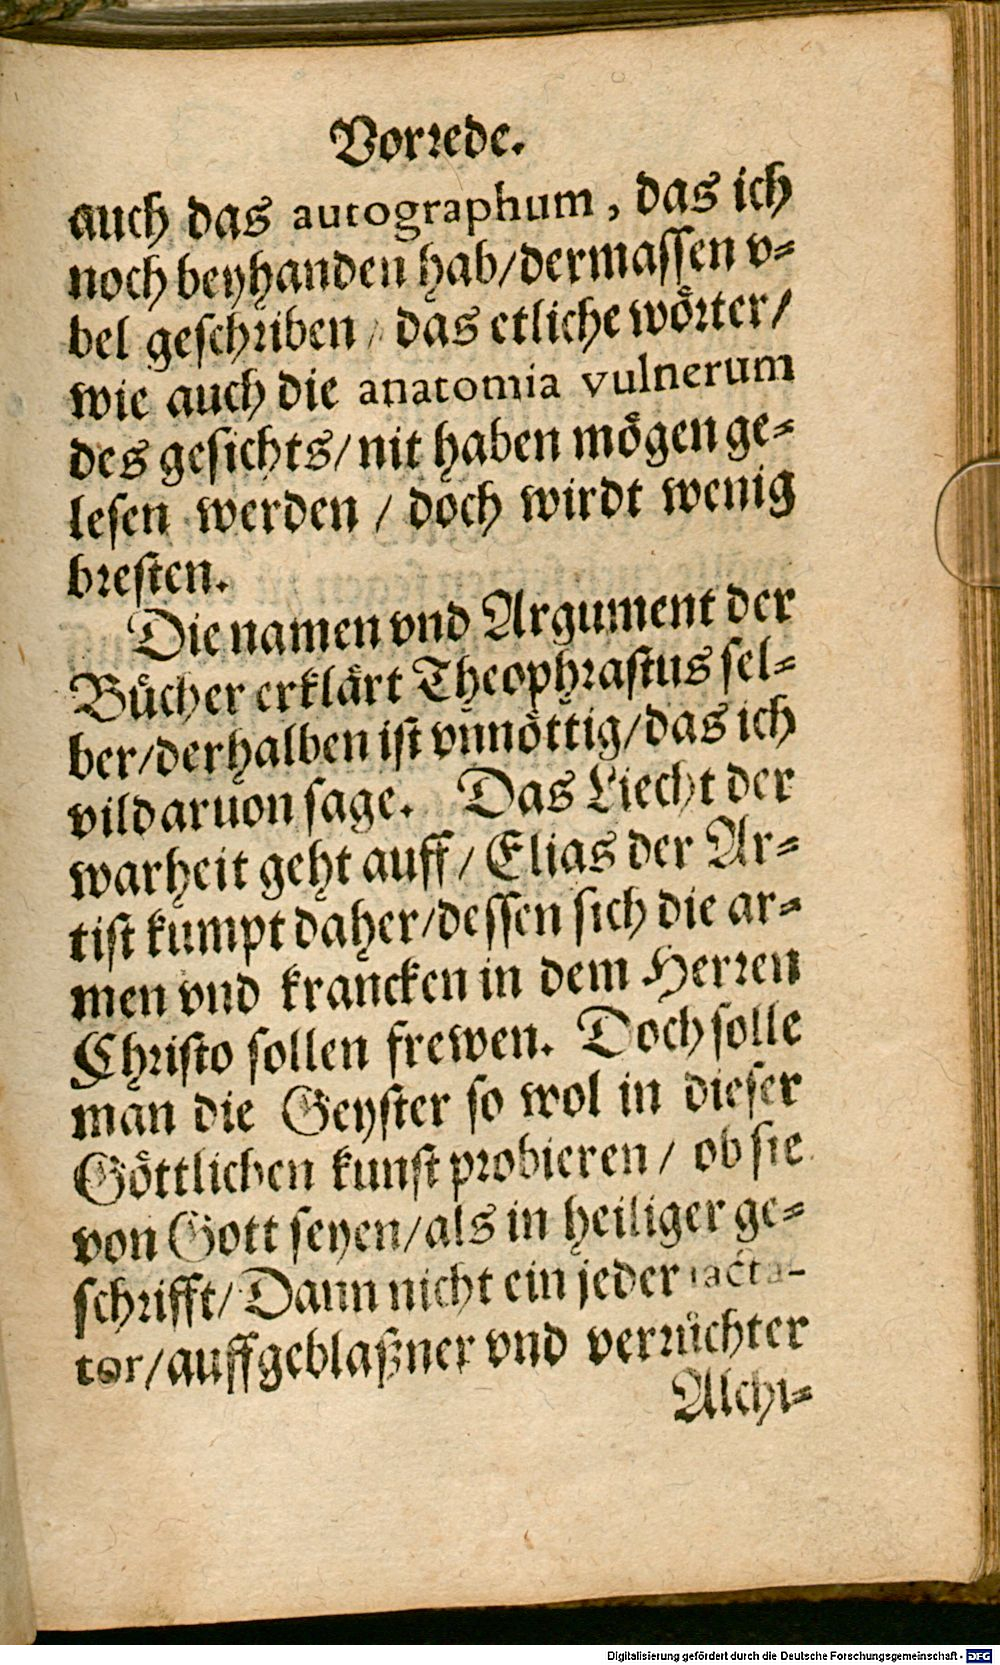 Vorrede.
auch das autographum, das ich
noch beyhanden hab/dermassen v=
bel geschriben / das etliche wörter/
wie auch die anatomia vulnerum
des gesichts/nit haben mögen ge=
lesen werden / doch wirdt wenig
bresten.
Die namen vnd Argument der
Bücher erklärt Theophrastus sel=
ber/derhalben ist vnnöttig/das ich
vil daruon sage. Das Liecht der
warheit geht auff/ Elias der Ar=
tist kumpt daher/dessen sich die ar=
men vnd krancken in dem Herren
Christo sollen frewen. Doch solle
man die Geyster so wol in dieser
Göttlichen kunst probieren/ ob sie
von Gott seyen/als in heiliger ge=
schrifft/ Dann nicht ein jeder iacta-
tor/auffgeblaßner vnd verrůchter
Alchi=
Digitalisierung gefördert durch die Deutsche Forschungsgemeinschaft - DFG